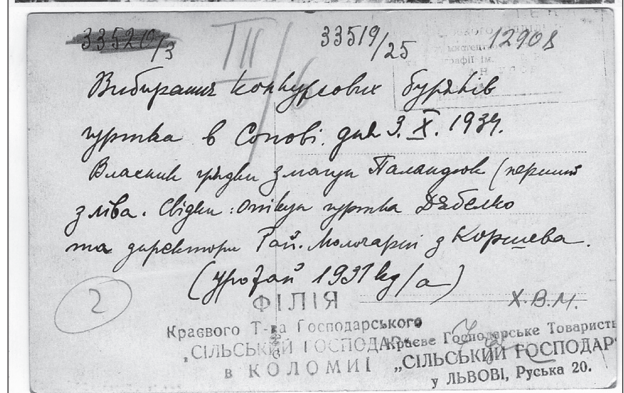 33520/3 33519/25 12908
III/6
Вибирання конкурсових буряків
гуртка в Сопові. дня 3. X. 1937.
Власник грядки змагун Паландюк (перший
зліва. Свідки: Опікун гуртка Дзбелко
та директори Рай. Молочарні з Коршева.
(урожай 1937 kg/a)
2
Х.В.М.
ФІЛІЯ
Краєвого Т-ва Господарського
„СІЛЬСЬКИЙ ГОСПОДАР"
в КОЛОМИЇ
Краєве Господарське Товариств
„СІЛЬСЬКИЙ ГОСПОДАР
у ЛЬВОВІ, Руська 20.